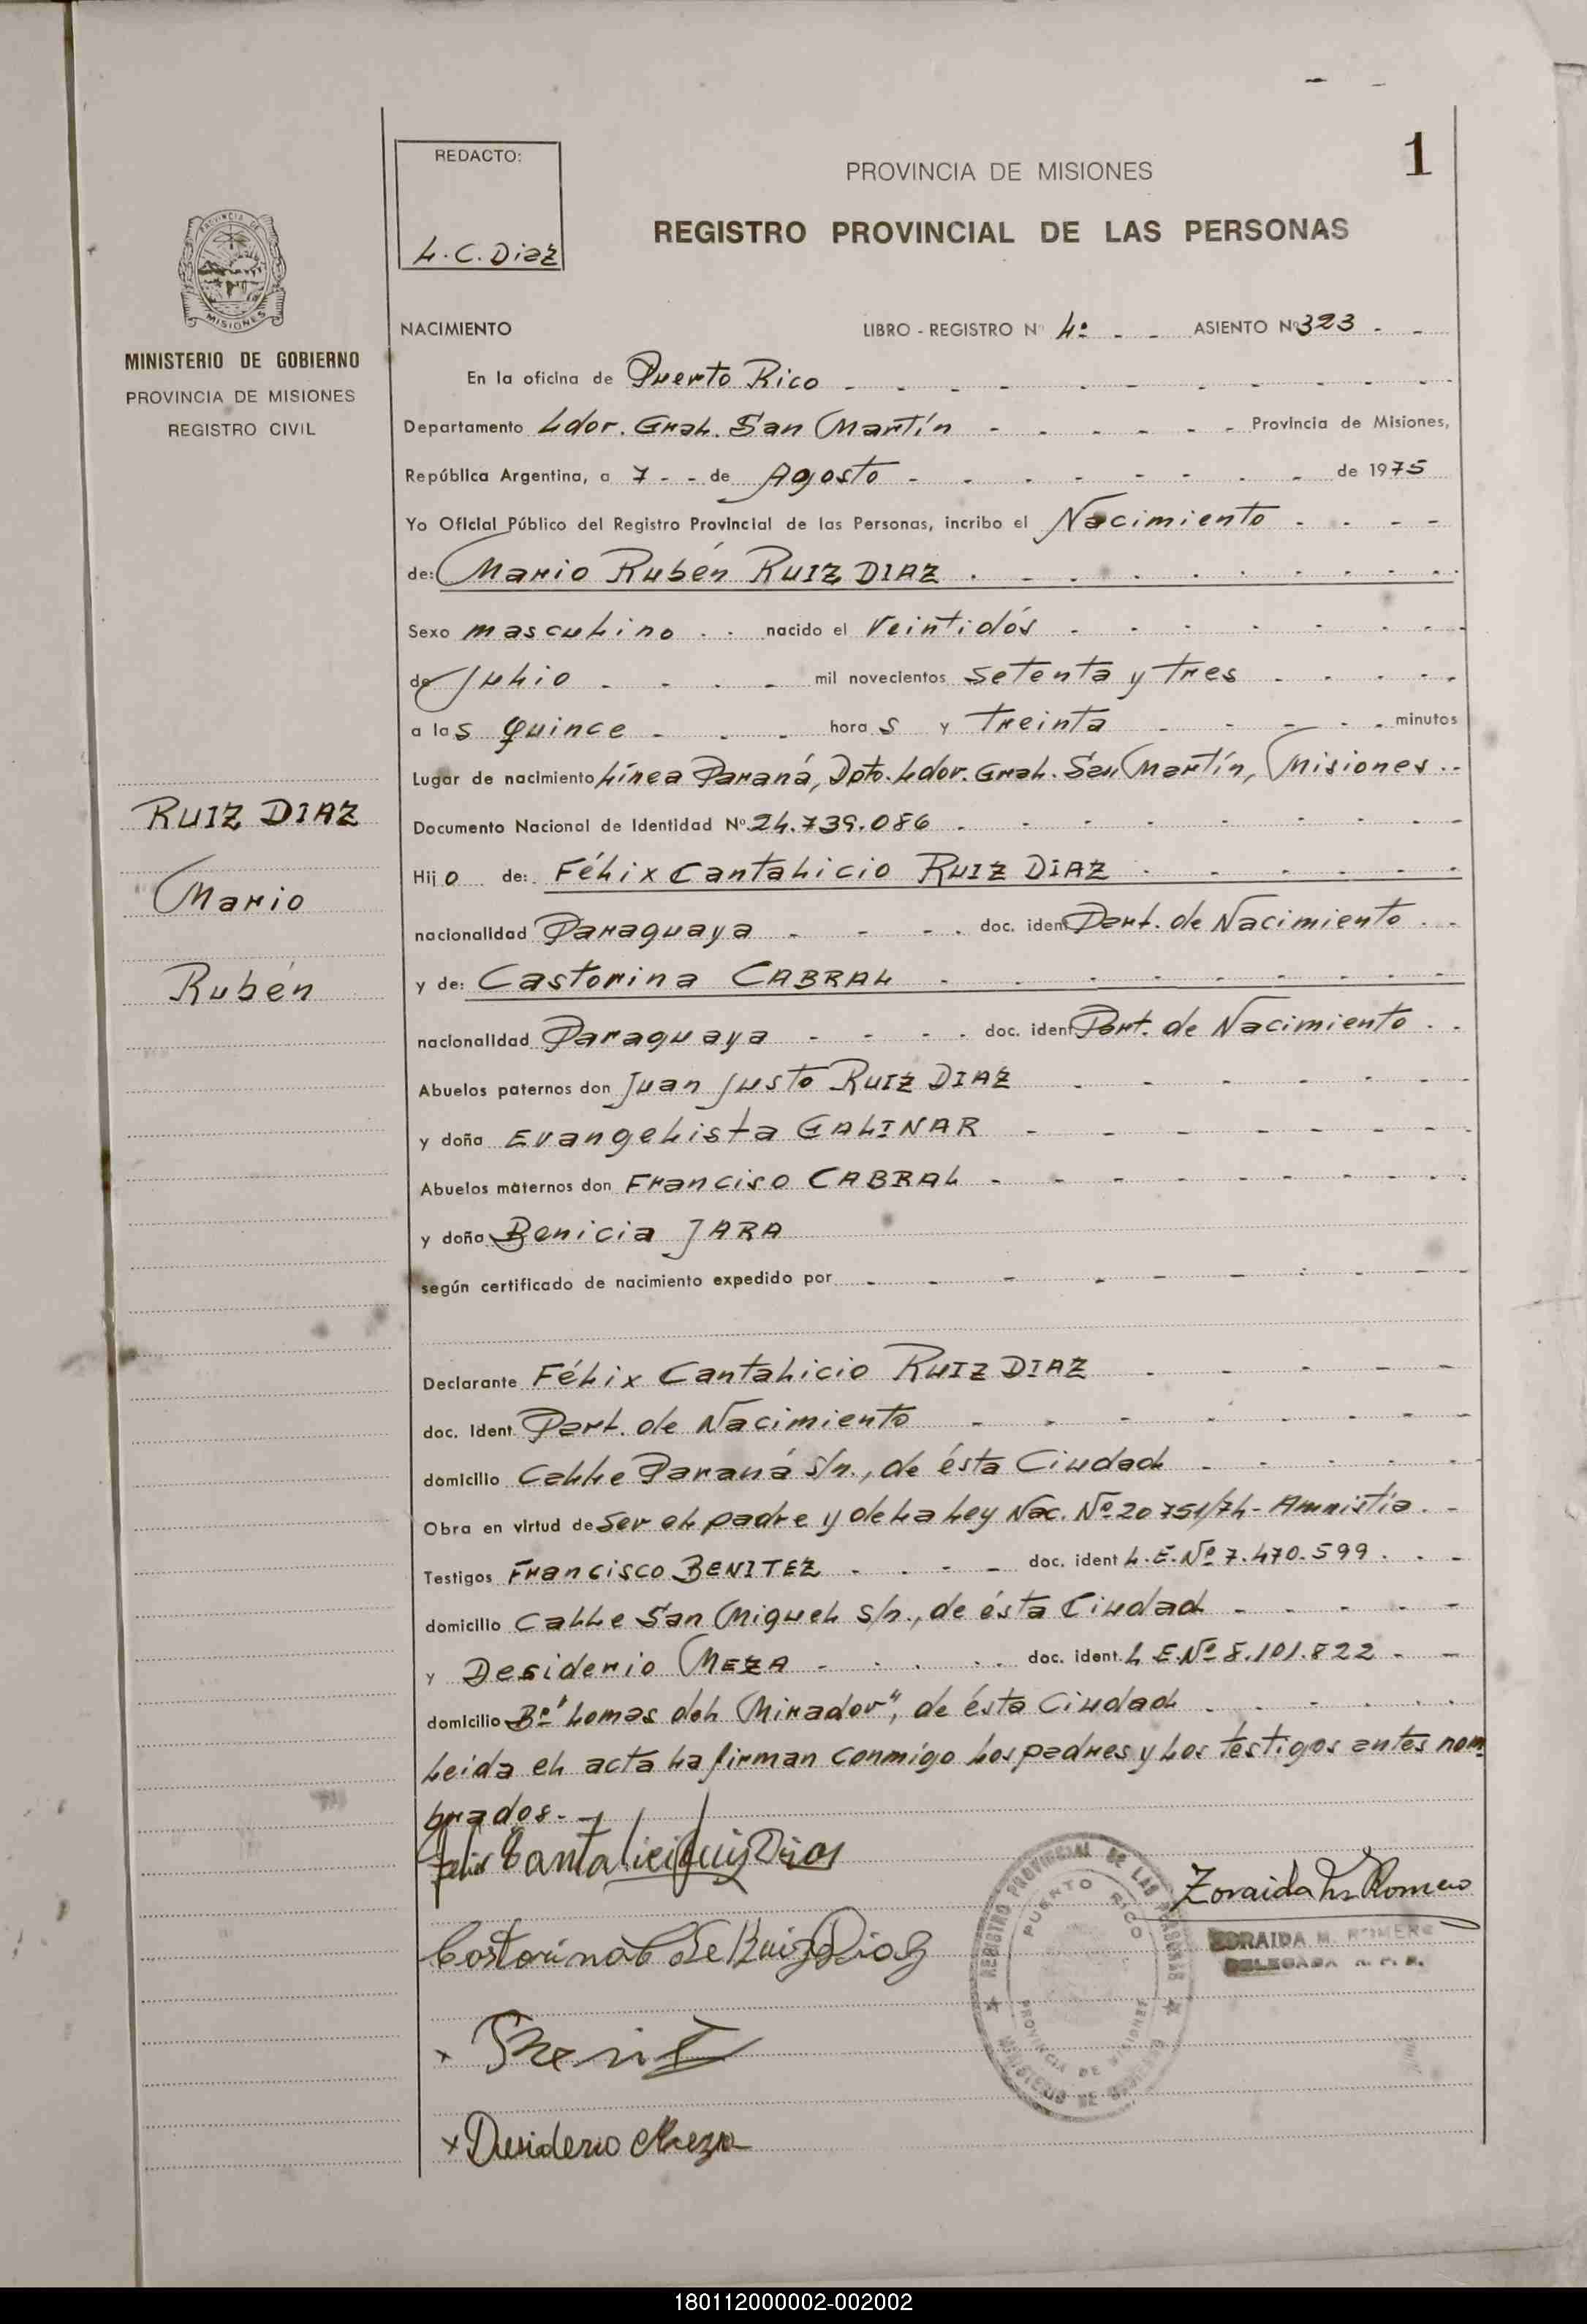 1
REDACTO:
L.C. Diaz
PROVINCIA DE MISIONES
REGISTRO PROVINCIAL DE LAS PERSONAS
PROVINCIA DE
MISIONES
MINISTERIO DE GOBIERNO
PROVINCIA DE MISIONES
REGISTRO CIVIL
RUIZ DIAZ
Mario
Rubén
NACIMIENTO LIBRO - REGISTRO Nº 4º - - ASIENTO Nº 323 - -
En la oficina de Puerto Rico
Departamento Ldor. Gral. San Martín Provincia de Misiones,
República Argentina, a 7 - - de Agosto de 1975
Yo Oficial Público del Registro Provincial de las Personas, incribo el Nacimiento
de: Mario Rubén RUIZ DIAZ
Sexo masculino nacido el Veintidós
de Julio mil novecientos setenta y tres
a las quince horas y treinta minutos
Lugar de nacimiento Línea Paraná, Dpto. Ldor. Gral. San Martín, Misiones
Documento Nacional de Identidad Nº 24.739.086
Hijo de: Félix Cantalicio RUIZ DIAZ
nacionalidad Paraguaya doc. ident Part. de Nacimiento
y de: Castorina CABRAL
nacionalidad Paraguaya doc. ident Part. de Nacimiento
Abuelos paternos don Juan Justo RUIZ DIAZ
y doña Evangelista GALINAR
Abuelos maternos don Franciso CABRAL
y doña Benicia JARA
según certificado de nacimiento expedido por
Declarante Félix Cantalicio RUIZ DIAZ
doc. Ident. Part. de Nacimiento
domicilio Calle Paraná s/n., de ésta Ciudad
Obra en virtud de ser el padre y de la Ley Nac. Nº 20751/74 - Amnistía
Testigos Francisco BENITEZ doc. ident L.E. Nº 7.470.599
domicilio Calle San Miguel s/n., de ésta Ciudad
y Desiderio MEZA doc. ident. L.E. Nº 8.101.822
domicilio Bº "Lomas del Mirador", de ésta Ciudad
Leida el acta la firman conmigo los padres y los testigos antes nom
brados.-
Felix Cantalici Ruiz Dias
Castorina C de Ruiz Diaz
x Desiderio Meza
Zoraida M. Romero
ZORAIDA M. ROMERO
DELEGADA R. P. P.
REGISTRO PROVINCIAL DE LAS PERSONAS
PUERTO RICO
PROVINCIA DE MISIONES
MINISTERIO DE GOBIERNO
180112000002-002002